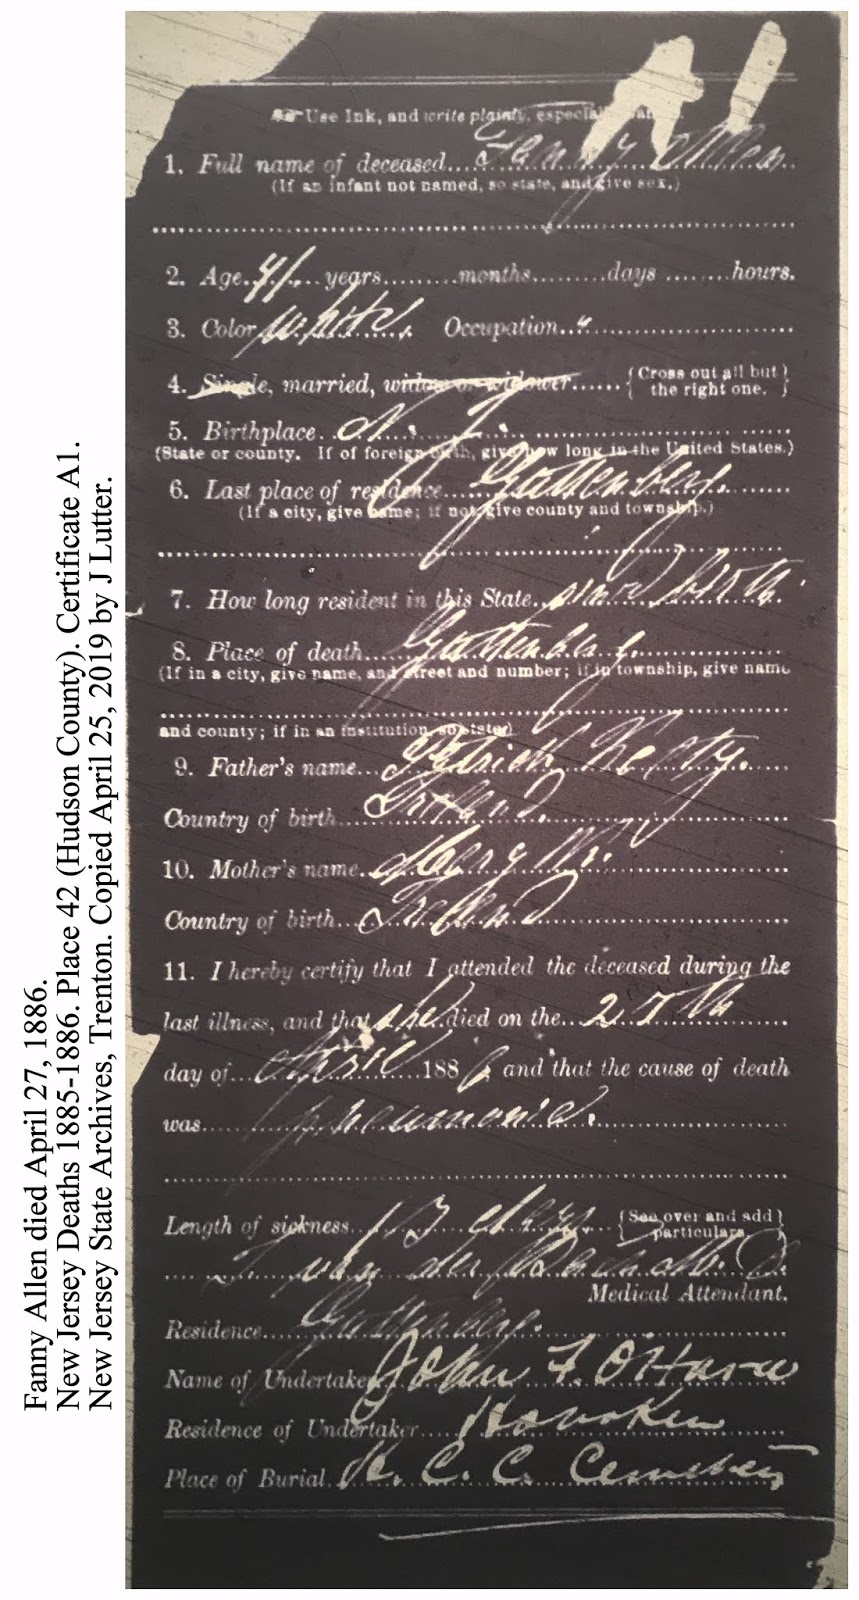 Fanny Allen died April 27, 1886.
New Jersey Deaths 1885-1886. Place 42 (Hudson County). Certificate A1.
New Jersey State Archives, Trenton. Copied April 25, 2019 by J Lutter.
Use Ink, and write plainly, especially
1. Full name of deceased.... Fanny Allen
(If an infant not named, so state, and give sex.)
2. Age. 41 years........months.........days.......hours.
3. Color white. Occupation.. "
4. Single, married, widow or widower...... {Cross out all but the right one.}
5. Birthplace.. N. J.
(State or county. If of foreign birth, give how long in the United States.)
6. Last place of residence.... Guttenberg.
(If a city, give name; if not, give county and township.)
7. How long resident in this State.. since birth.
8. Place of death... Guttenberg.
(If in a city, give name, and street and number; if in township, give name
and county; if in an institution, so state)
9. Father's name... Patrick
Country of birth... Ireland.
10. Mother's name.. Mary
Country of birth... Ireland
11. I hereby certify that I attended the deceased during the
last illness, and that she died on the... 27th
day of... April 1886, and that the cause of death
was.... pneumonia.
Length of sickness... days. {See over and add particulars.}
van der M. D.
Medical Attendant.
Residence... Guttenberg.
Name of Undertaker John F. O'Hara
Residence of Undertaker.... Hoboken
Place of Burial. R. C. C. Cemetery